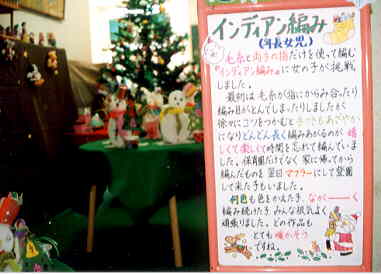 インディアン編み
(年長女児)
毛糸と両手の指だけを使って編む
『インディアン編み』に女の子が挑戦
しました。
最初は毛糸が指にからみ合ったり
編み目がとんでしまったりしましたが
徐々にコツをつかむと手つきもあざやか
になりどんどん長く編みあがるのが嬉
しくて楽しくて時間を忘れて編んでいま
した。保育園だけでなく家に帰ってから
編んだものを翌日マフラーにして登園
して来た子もいました。
何色も色をかえたり、なが〜〜く
編み続けたり、みんな根気よく
頑張りました。どの作品も
とても暖かそう
ですね。